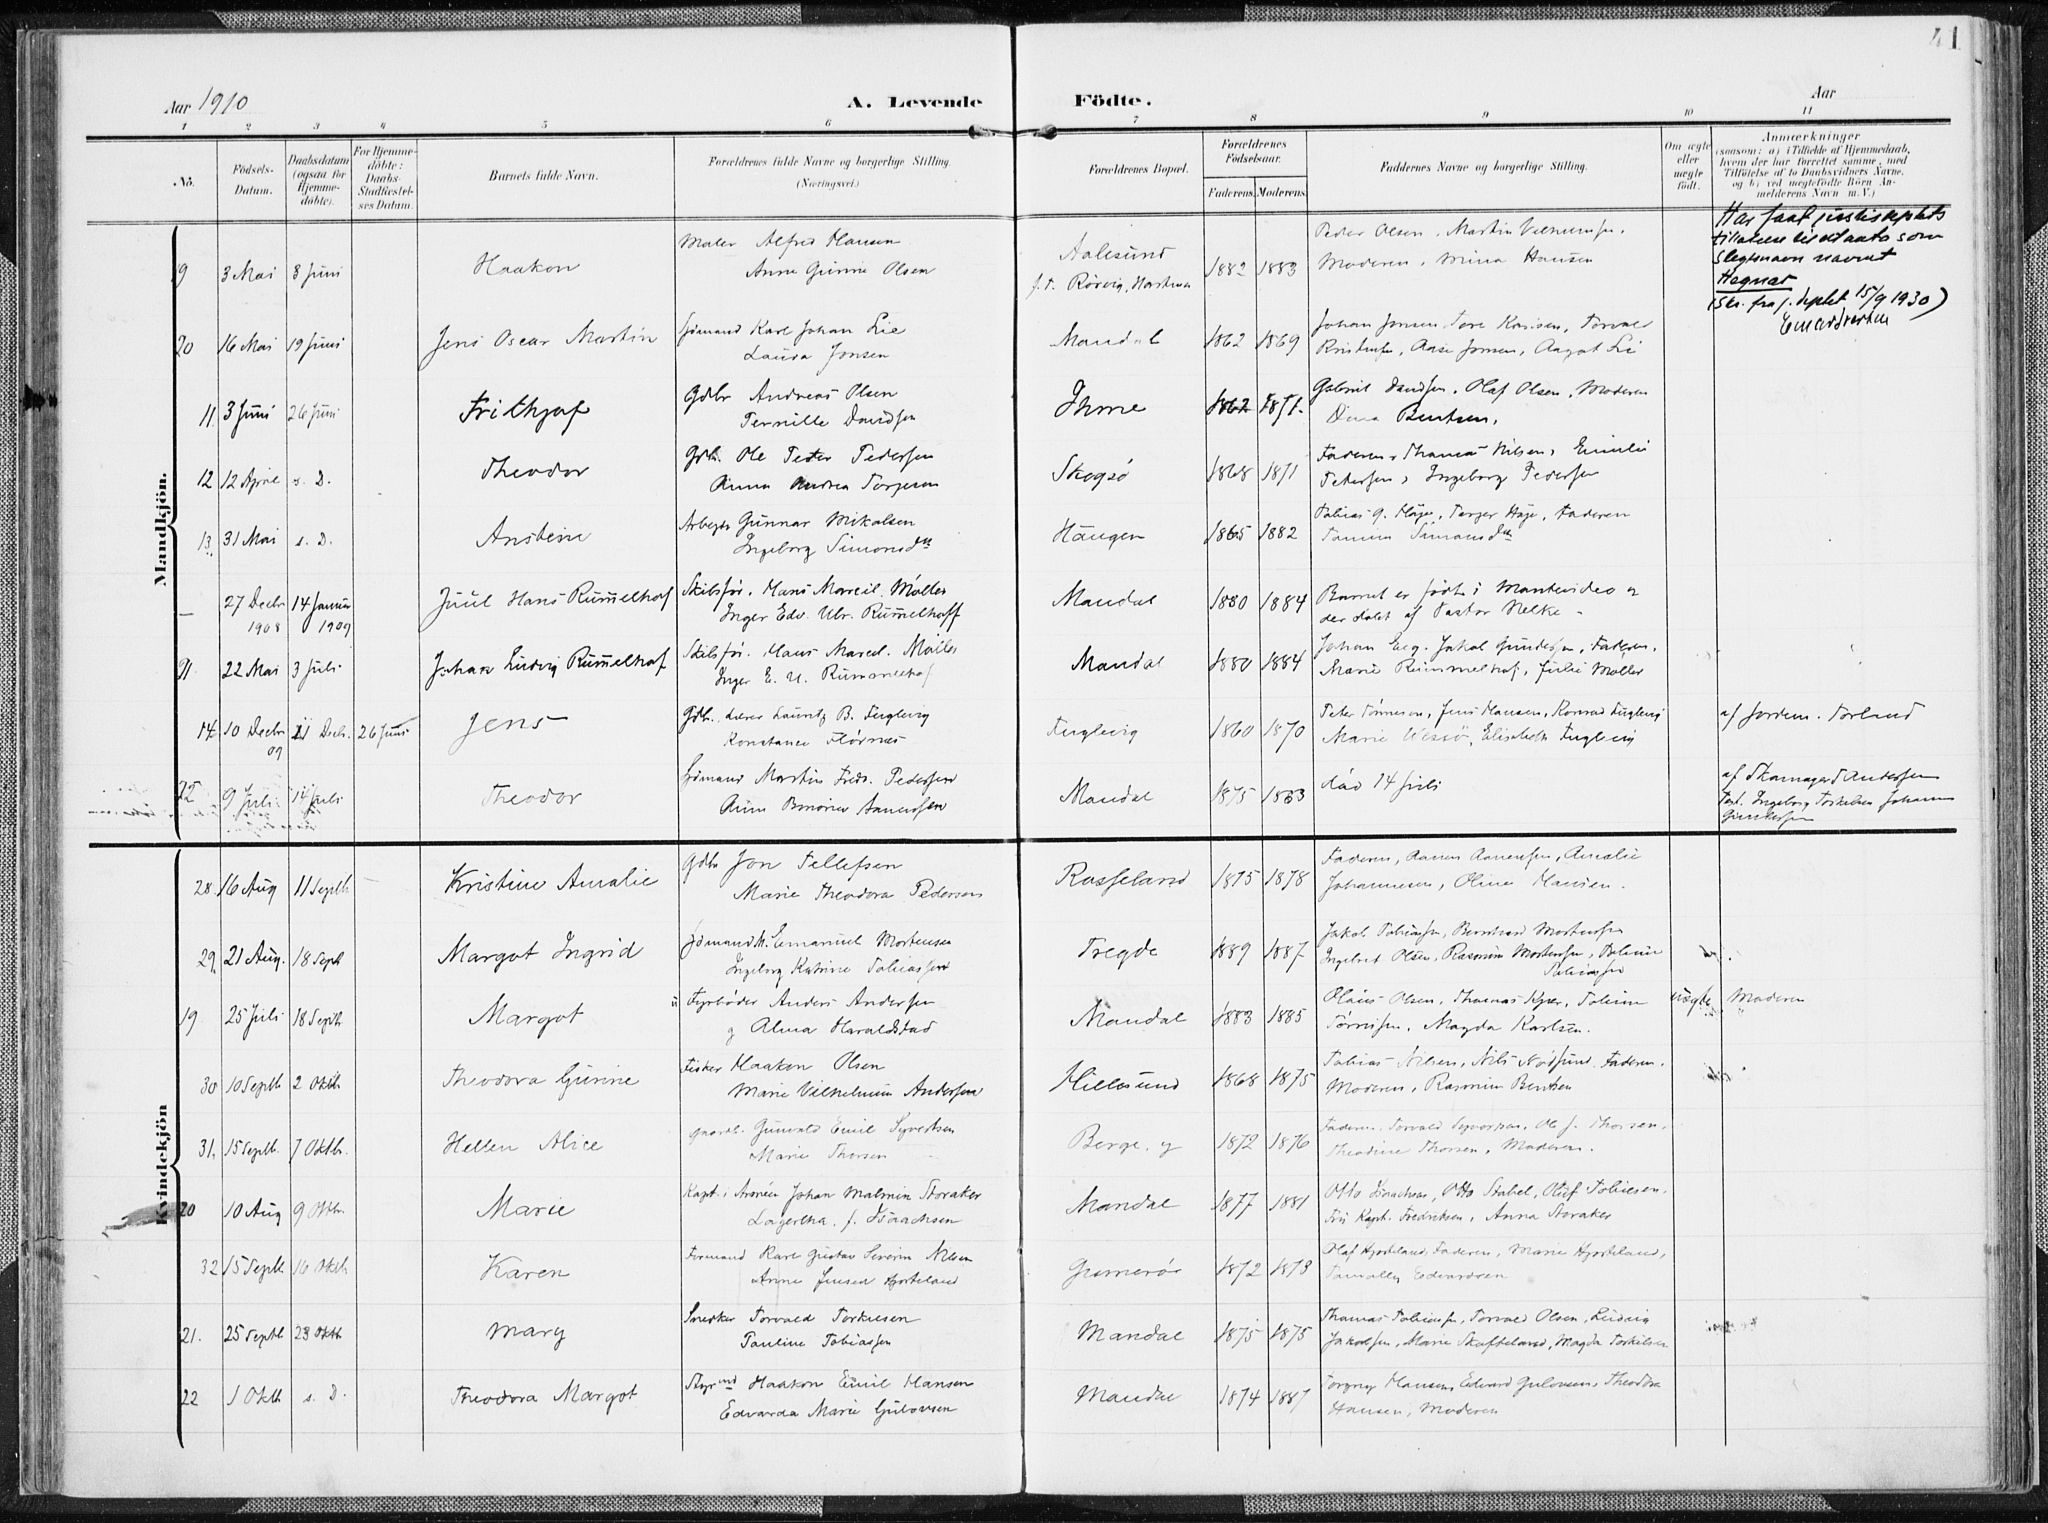 41
Aar 1910
A. Levende Födte.
Aar
1 2 3 4 5 6 7 8 9 10 11
No.
Födsels-Datum.
Daabsdatum (ogsaa for Hjemme-döbte).
For Hjemme-döbte: Daabs-Stadfæstel-ses Datum.
Barnets fulde Navn.
Forældrenes fulde Navne og borgerlige Stilling. (Næringsvei.)
Forældrenes Bopæl.
Forældrenes Födselsaar.
Faderens. Moderens.
Faddernes Navne og borgerlige Stilling.
Om ægte eller uægte födt.
Anmærkninger
(saasom: a) i Tilfælde af Hjemmedaab,
hvem der har forrettet samme, med
Tilföielse af to Daabsvidners Navne,
og b) ved uegtefödte Börn An-
melderens Navn m. V.)
Mandkjön.
9 3 Mai 8 Juni Haakon Maler Alfred Hansen
Anne Gunne Olsen
Aalesund
1882 1883 Peder Olsen, Martin
Moderen, Mina Hansen
Har faat justisdeptets
tillatelse til at anta som
slegtsnavn navnet
Hegnar
(Skr. fra j. deptet 15/9 1930)
20 16 Mai 19 Juni Jens Oscar Martin Sjömand Karl Johan Lie
Laura Jonsen
Mandal 1862 1869 Johan Jonsen, Tore
Aase Jonsen, Aagot Lie
11 3 Juni 26 Juni Frithjof Gdbr Andreas Olsen
Pernille Davidsen
Ihme 1862 1871. Gabriel Davidsen, Olaf Olsen, Moderen
Dina Bentsen.
12 12 April s. D. Theodor Gdb. Ole Peder Pedersen
Anna Andrea Torjesen
Skogsø 1868 1871 Faderen, Thomas Nilsen, Emilie
Petersen, Ingeborg Pedersen
13 31 Mai s. D. Anstein Arbeyder Gunnar Mikalsen
Ingeborg Simonsdtt
Haugen 1865 1882 Tobias G. Høye, Torger Høye, Faderen
Simonsdtt
— 27 Decbr 1908 14 Januar 1909 Juul Hans Rummelhof Skibsfør. Hans Marcil. Møller
Inger Edv. Ulr. Rummelhoff
Mandal 1880 1884 Barnet er født i Montevideo og
der døbt af Pastor Nelke -
91 22 Mai 3 Juli Johan Ludvig Rummelhof Skibsfør. Hans Marcel. Møller
Inger E. U. Rummelhof
Mandal 1880 1884 Johan Eeg, Jakob Gundersen, Faderen,
Marie Rummelhof, Julie Møller
14 10 Decbr 09 11 Decbr. 26 Juni Jens Gdb. Lærer Lauritz B. Fuglevig
Konstance Flørnæs
Fuglevig 1860 1870 Peter Tønnesen, Jens Hansen, Konrad Fuglevig
Marie Wessø, Elisabeth Fuglevig
af Jordem. Forland
22 9 Juli 14 Juli Theodor Sjömand Martin Fredr. Pedersen
Mandal 1875 1883 død 14 Juli
af Skomager T Andersen
Test. Ingeborg Torkelsen Johanne
Gundersen
Kvindekjön
28 16 Aug 11 Septb Kristine Amalie Gdbr Jon Tellefsen
Marie Theodora Pedersen
Rosseland 1875 1878 Faderen, Aanen Aanensen, Amalie
Johannesen, Oline Hansen.
29. 21 Aug. 18 Sept Margot Ingrid Sjömand M. Emanuel Mortensen
Ingeborg Katrine Tobiassen
Tregde 1889 1887 Jakob Tobiassen, Bernhard Mortensen
Ingebret Olsen, Rasmine Mortensen, Tobine
Tobiassen
19 25 Juli 18 Septb Margot Fyrbøder Anders Andersen
og Alma Haraldstad
Mandal 1883 1885 Olaus Olsen, Thomas Kjær, Tobine
Tønnesen, Magda Karlsen.
uægte Moderen
30 10 Septb 2 Oktb Theodora Gunine Fisker Haakon Olsen
Marie Vilhelmine Andersen
Hillesund 1868 1875 Tobias Nilsen, Nils Nødsund, Faderen.
Moderen, Rasmine Bentsen
31. 15 Septb. 7 Oktb. Hellen Alice Gaardb. Gunvald Emil Syvertsen
Marie Thorsen
Berge. y 1872 1876 Faderen, Torvald Syvertsen, Ole J. Thorsen,
Theodine Thorsen, Moderen.
20 10 Aug 9 Oktbr. Marie Kapt. i Armeen Johan Malmin Storaker
Lagertha f. Isaachsen
Mandal 1877 1881 Otto Isaachsen, Otto Stabel, Oluf Tobiesen.
Fru Kapt. Fredriksen, Anna Storaker
32 15 Septb. 16 Oktb. Karen Formand Karl Gustav Severin Nilsen
Anne Jensen Hjorteland
1872 1873 Olaf Hjorteland, Faderen, Marie Hjorteland,
Edvardsen
21. 25 Septb 23 Oktb. Mary Snedker Torvald Torkelsen
Pauline Tobiassen
Mandal 1875 1875 Thomas Tobiassen, Torvald Olsen, Ludvig
Jakobsen, Marie Skofteland, Magda Torkelsen
22 1 Oktb s. D. Theodora Margot Styrmd Haakon Emil Hansen
Edvarda Marie Gulovsen
Mandal 1874 1887 Torgny Hansen, Edvard Gulovsen, Theodora
Hansen, Moderen